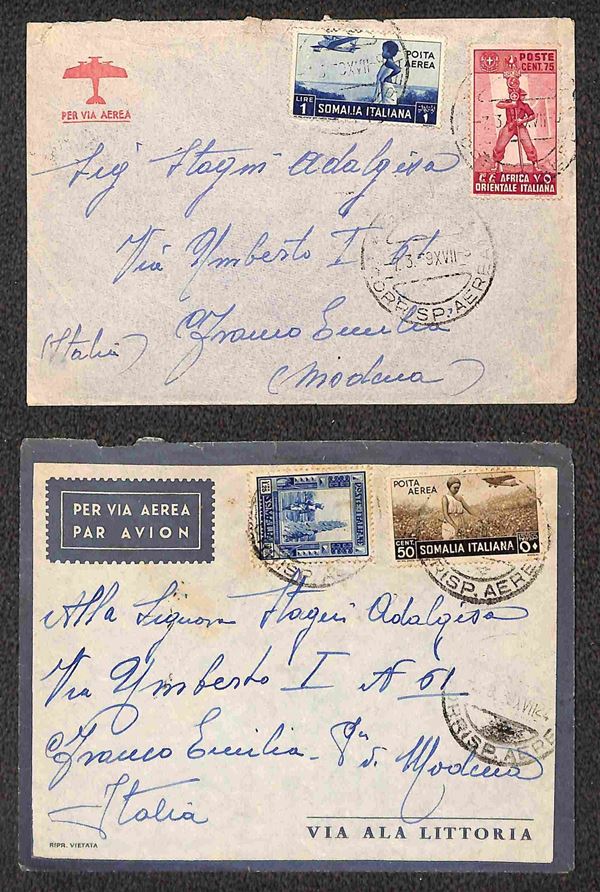 PER VIA AEREA
POSTA
AEREA
LIRE
1
SOMALIA ITALIANA
1
POSTE
CENT. 75
AFRICA
ORIENTALE ITALIANA
Sig Stagni Adalgisa
Via Umberto I
Franco Emilia
(Italia)
(Modena)
7.3. 9XVII
CORRISP. AEREA
PER VIA AEREA
PAR AVION
POSTA
AEREA
CENT.
50
SOMALIA ITALIANA
CORRISP. AEREA
Alla Signora Stagni Adalgisa
Via Umberto I N 61
Franco Emilia - P. di Modena
Italia
XVII-
CORRISP. AEREA
VIA ALA LITTORIA
RIPR. VIETATA